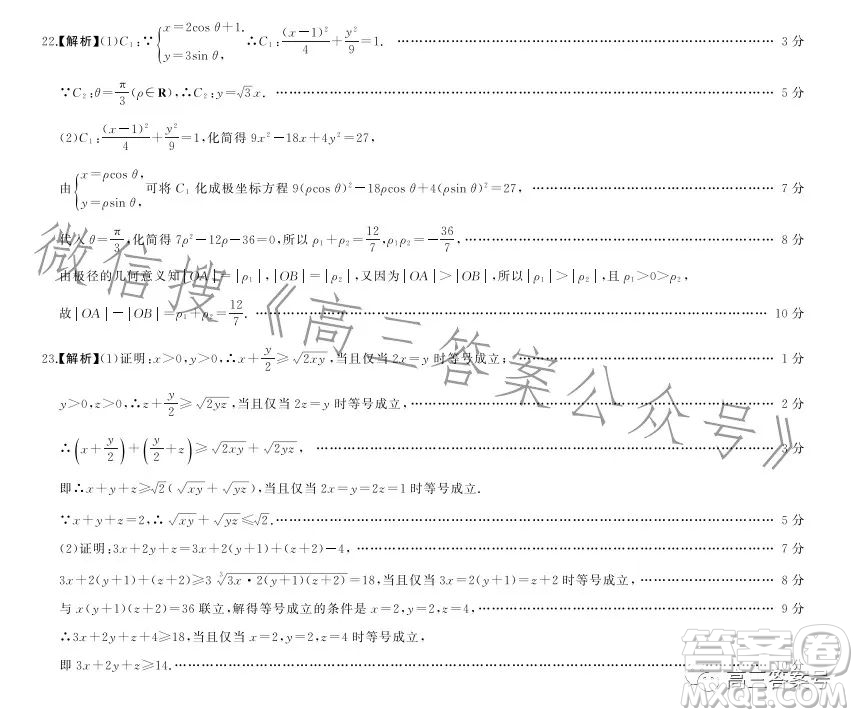 22.【解析】(1)C₁:∵{x=2cos θ+1. y=3sin θ, ∴C₁:(x-1)²/4+y²/9=1. …… 3分
∵C₂:θ=π/3(ρ∈R),∴C₂:y=√3x. …… 5分
(2)C₁:(x-1)²/4+y²/9=1,化简得9x²-18x+4y²=27,
由{x=ρcos θ, y=ρsin θ, 可将C₁化成极坐标方程9(ρcos θ)²-18ρcos θ+4(ρsin θ)²=27, …… 7分
代入θ=π/3,化简得7ρ²-12ρ-36=0,所以ρ₁+ρ₂=12/7,ρ₁ρ₂=-36/7, …… 8分
由极径的几何意义知|OA|=|ρ₁|,|OB|=|ρ₂|,又因为|OA|>|OB|,所以|ρ₁|>|ρ₂|,且ρ₁>0>ρ₂,
故|OA|-|OB|=ρ₁+ρ₂=12/7. …… 10分
23.【解析】(1)证明:x>0,y>0,∴x+y/2≥√(2xy),当且仅当2x=y时等号成立; …… 1分
y>0,z>0,∴z+y/2≥√(2yz),当且仅当2z=y时等号成立, …… 2分
∴(x+y/2)+(y/2+z)≥√(2xy)+√(2yz), …… 3分
即∴x+y+z≥√2(√(xy)+√(yz)),当且仅当2x=y=2z=1时等号成立.
∵x+y+z=2,∴√(xy)+√(yz)≤√2. …… 5分
(2)证明:3x+2y+z=3x+2(y+1)+(z+2)-4, …… 7分
3x+2(y+1)+(z+2)≥3∛(3x·2(y+1)(z+2))=18,当且仅当3x=2(y+1)=z+2时等号成立, …… 8分
与x(y+1)(z+2)=36联立,解得等号成立的条件是x=2,y=2,z=4, …… 9分
∴3x+2y+z+4≥18,当且仅当x=2,y=2,z=4时等号成立,
即3x+2y+z≥14. …… 10分
微信搜《高三答案公众号》
答案圈
高三答案号
MXQE.COM